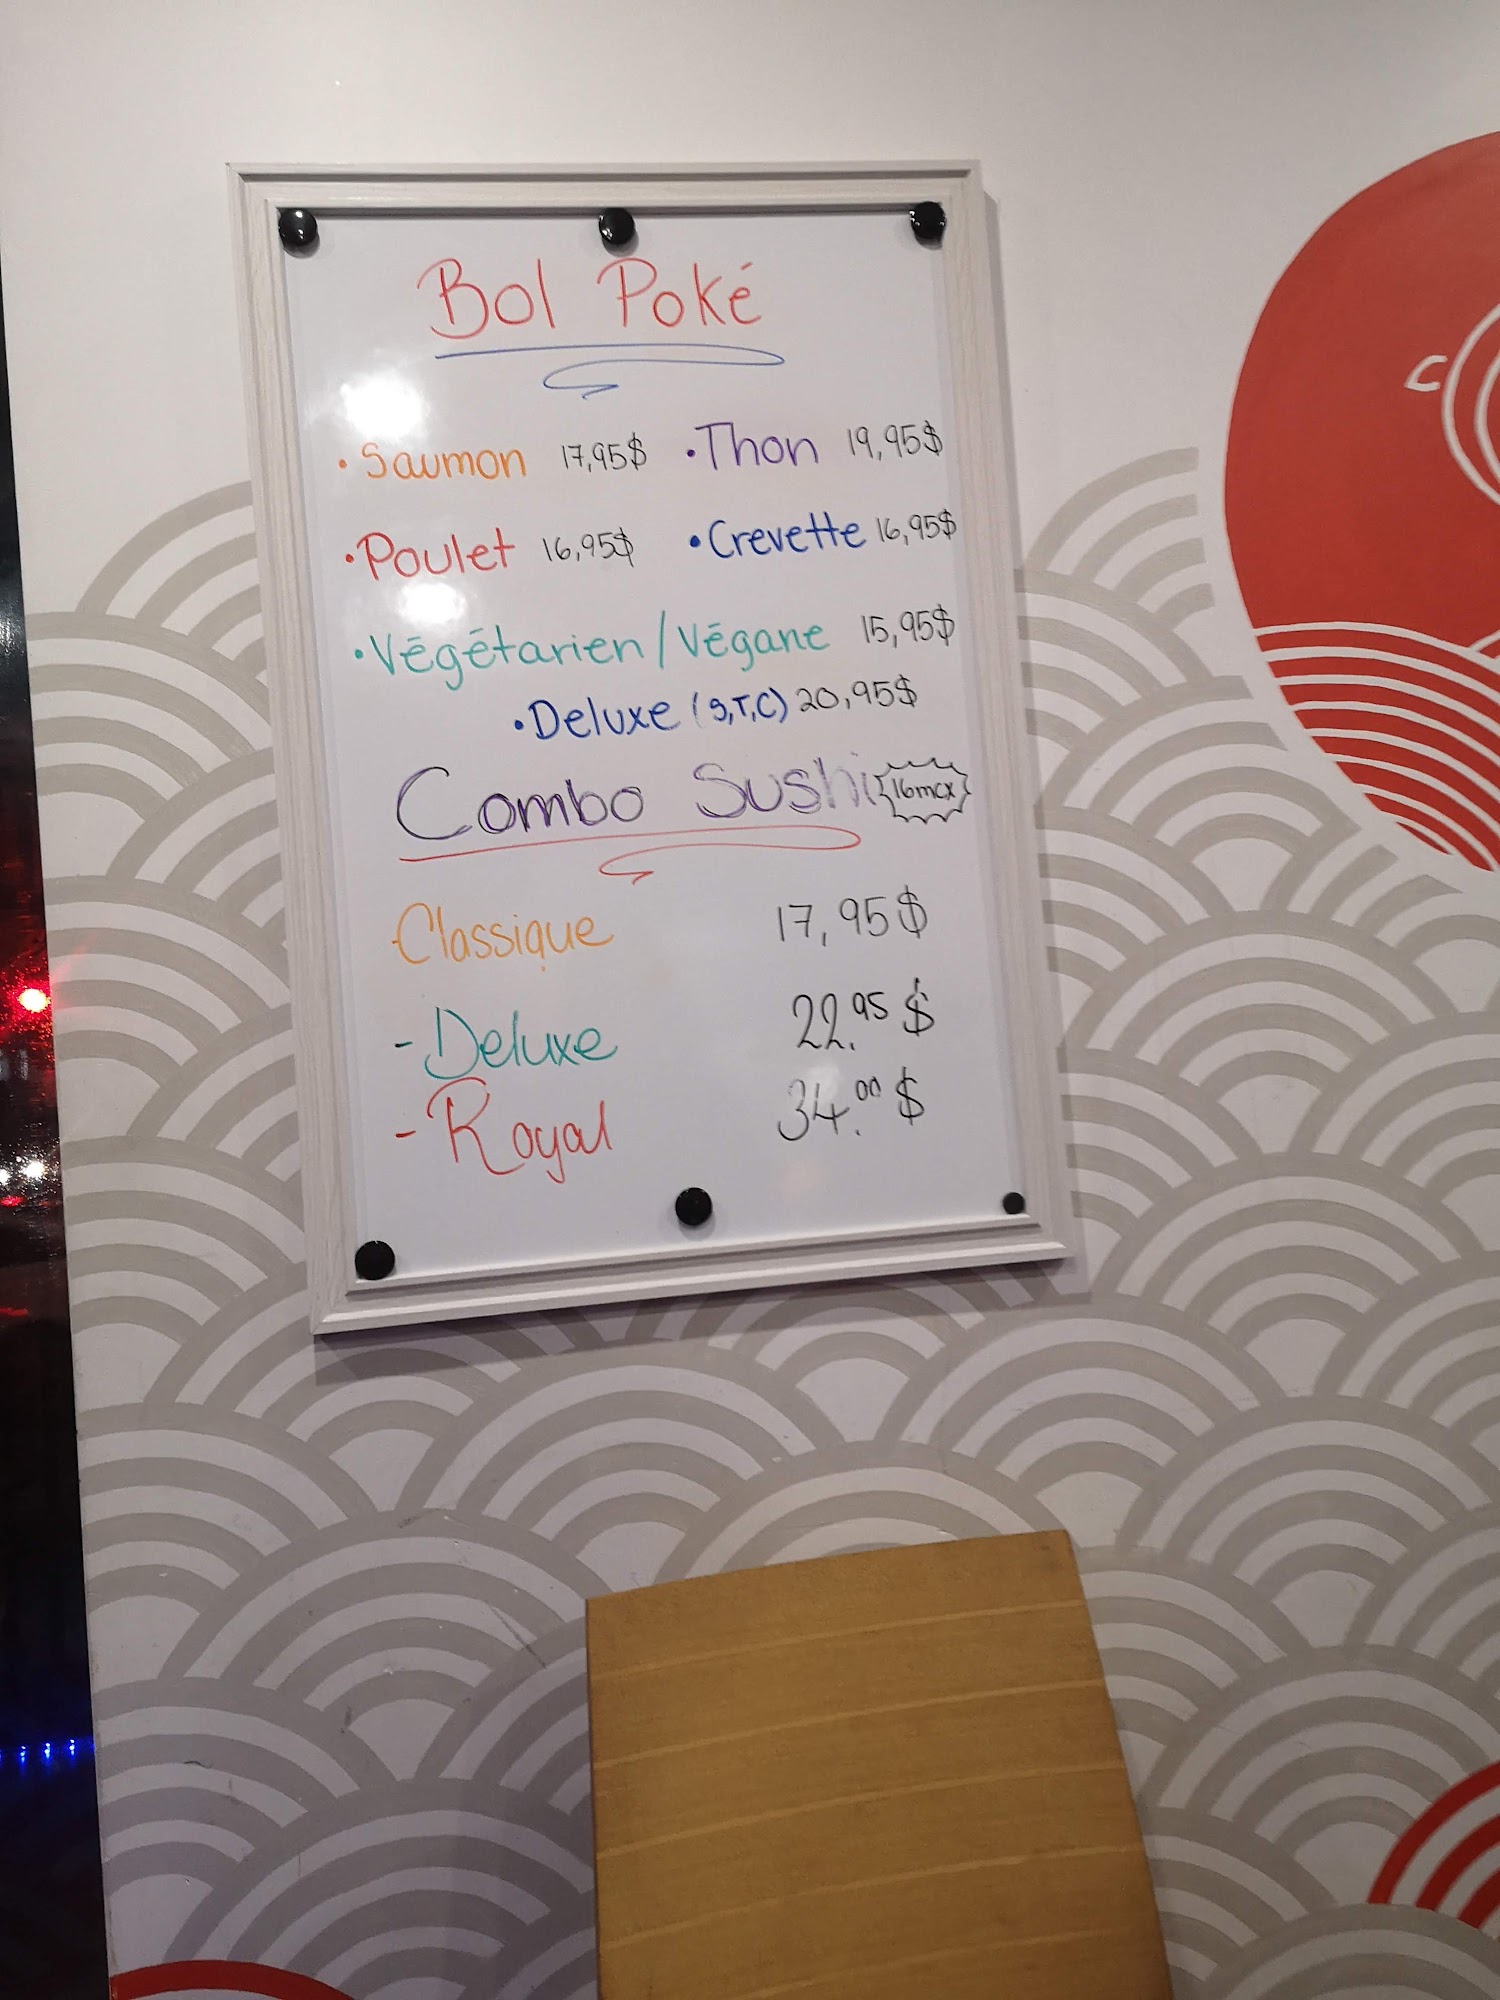 Bol Poké
• Saumon 17,95$ • Thon 19,95$
• Poulet 16,95$ • Crevette 16,95$
• Végétarien/Végane 15,95$
• Deluxe (S,T,C) 20,95$
Combo Sushi 16mcx
Classique 17,95$
- Deluxe 22.95 $
- Royal 34.00 $